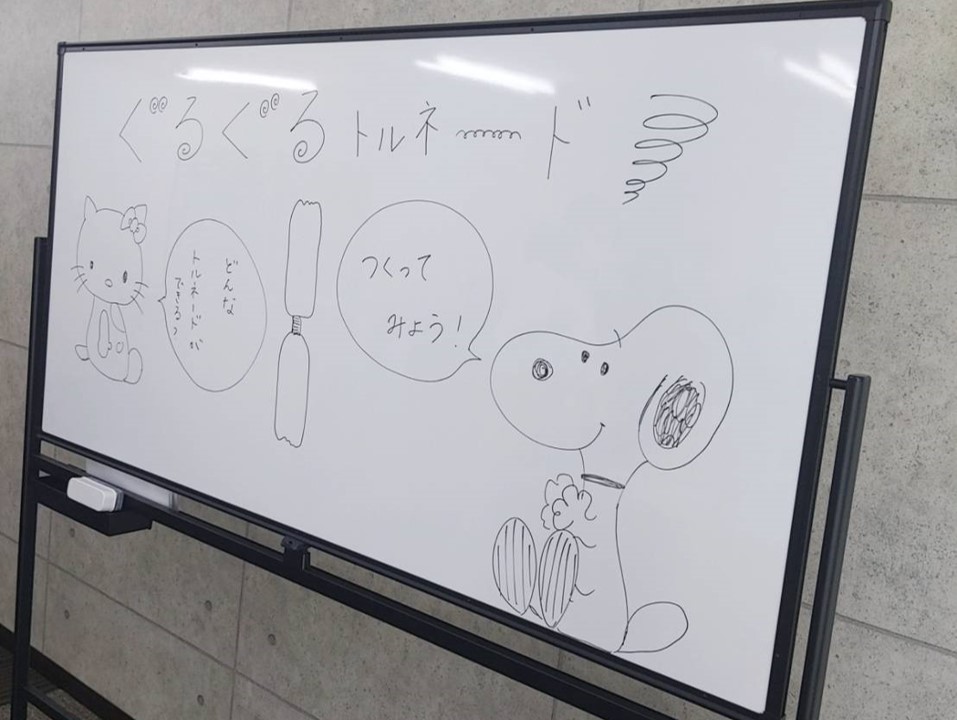 ぐるぐるトルネード
どんな
トルネードが
できる?
つくって
みよう!